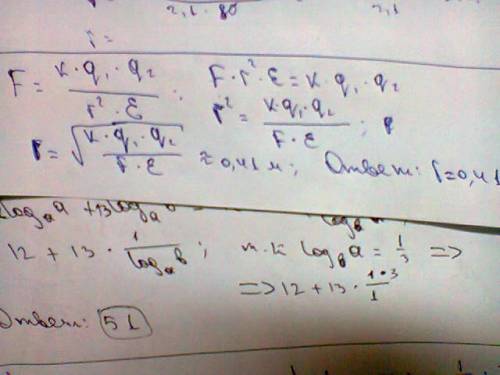 2,1 · 80
2,1
r =
F = K·q₁·q₂ / r²·ε ; F·r²·ε = K·q₁·q₂
r² = K·q₁·q₂ / F·ε ;
r = √(K·q₁·q₂ / F·ε) ≈ 0,41 м ; Ответ: r=0,41
12 + 13 · 1 / logₐb ; т.к log_b a = 1/3 =>
=> 12 + 13 · 1·3 / 1
Ответ: 51